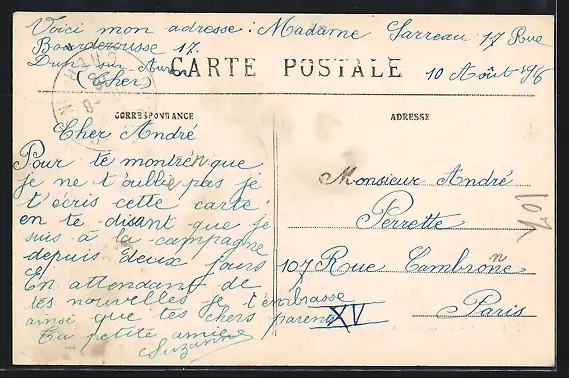 Voici mon adresse : Madame Sarreau 17 Rue
Bourderousse 17.
Dun-sur-Auron
(Cher)
CARTE POSTALE
10 Août 1916
CORRESPONDANCE
ADRESSE
Cher André
Pour te montrér que
je ne t'oullie pas je
t'écris cette carte
en te disant que je
suis à la campagne
depuis deux jours
En attendant de
tes nouvelles je t'embrasse
ainsi que tes chers parents
Ta petite amie
Suzanne
Monsieur André
Perrette
107 Rue Cambronne
Paris
XV
107